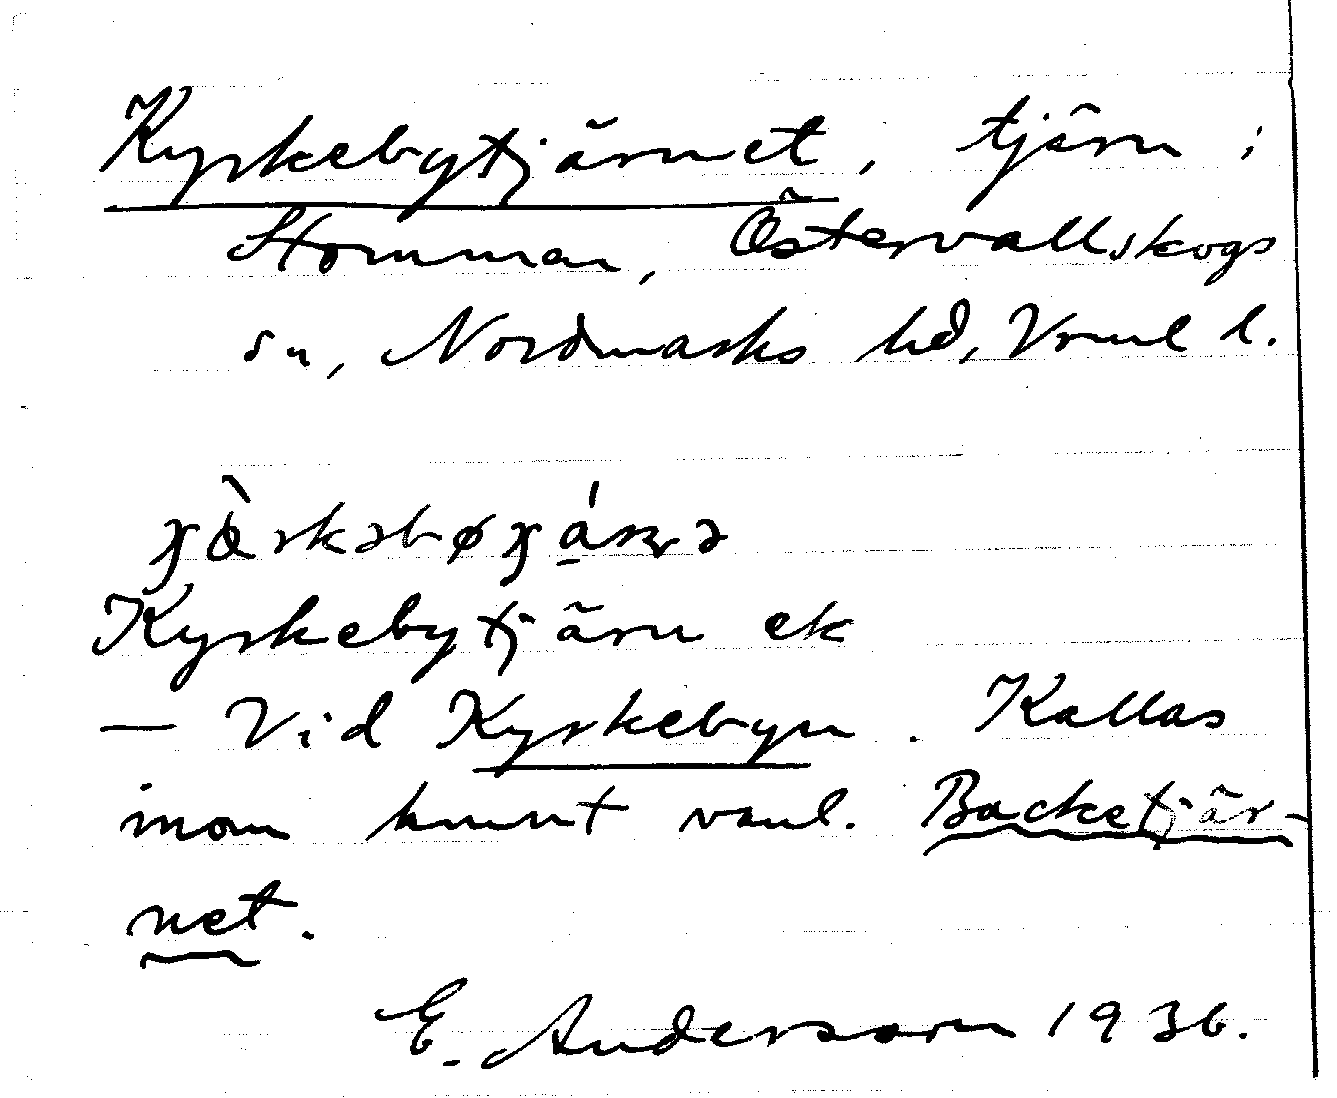 Kyrkebytjärnet, tjärn i
Hommar, Östervallskogs
sn, Nordmarks hd, Vrml l.
Kyrkebytjärn ek
— Vid Kyrkebyn. Kallas
inom kunnt vanl. Backetjär-
net.
E. Anderson 1936.